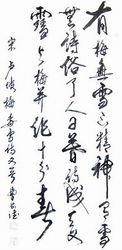 有梅無雪不精神有雪
無詩俗了人日暮詩成天又
雪与梅并作十分春
宋卢梅坡